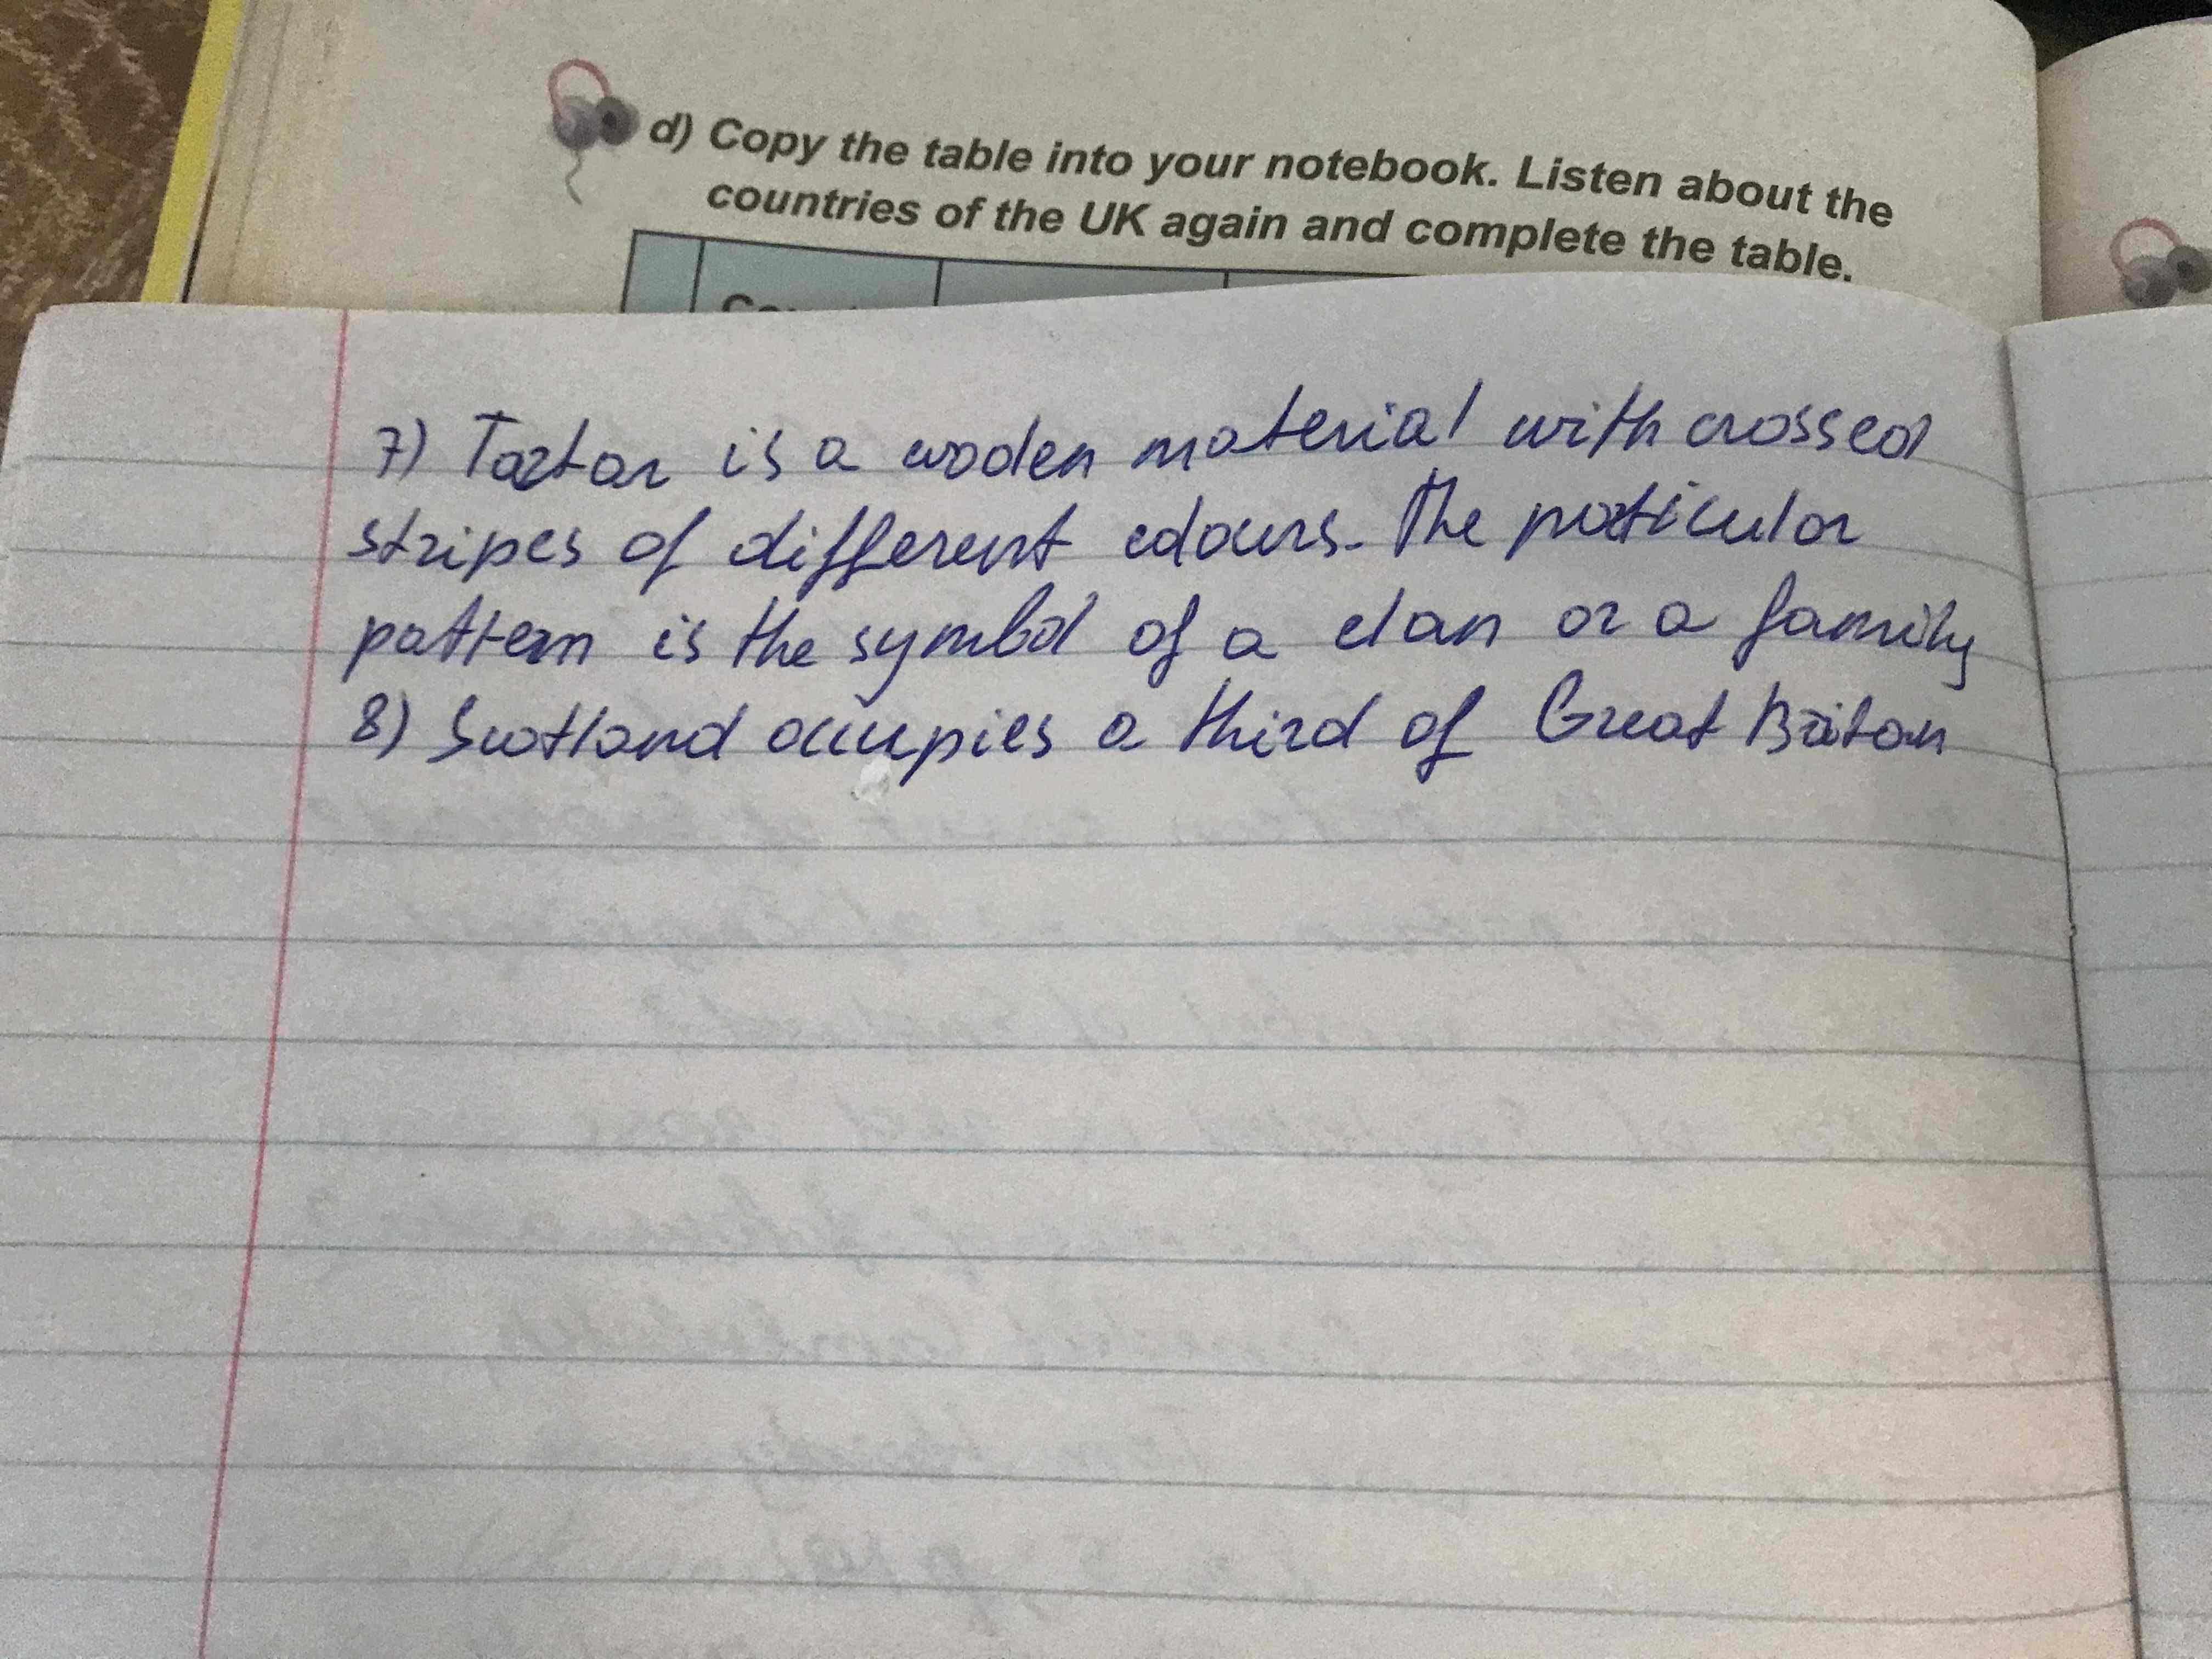 d) Copy the table into your notebook. Listen about the
countries of the UK again and complete the table.
7) Tartar is a wooden material with crossed
stripes of different colours. The paticular
pattern is the symbol of a clan or a family
8) Scotland occupies a third of Great Britan